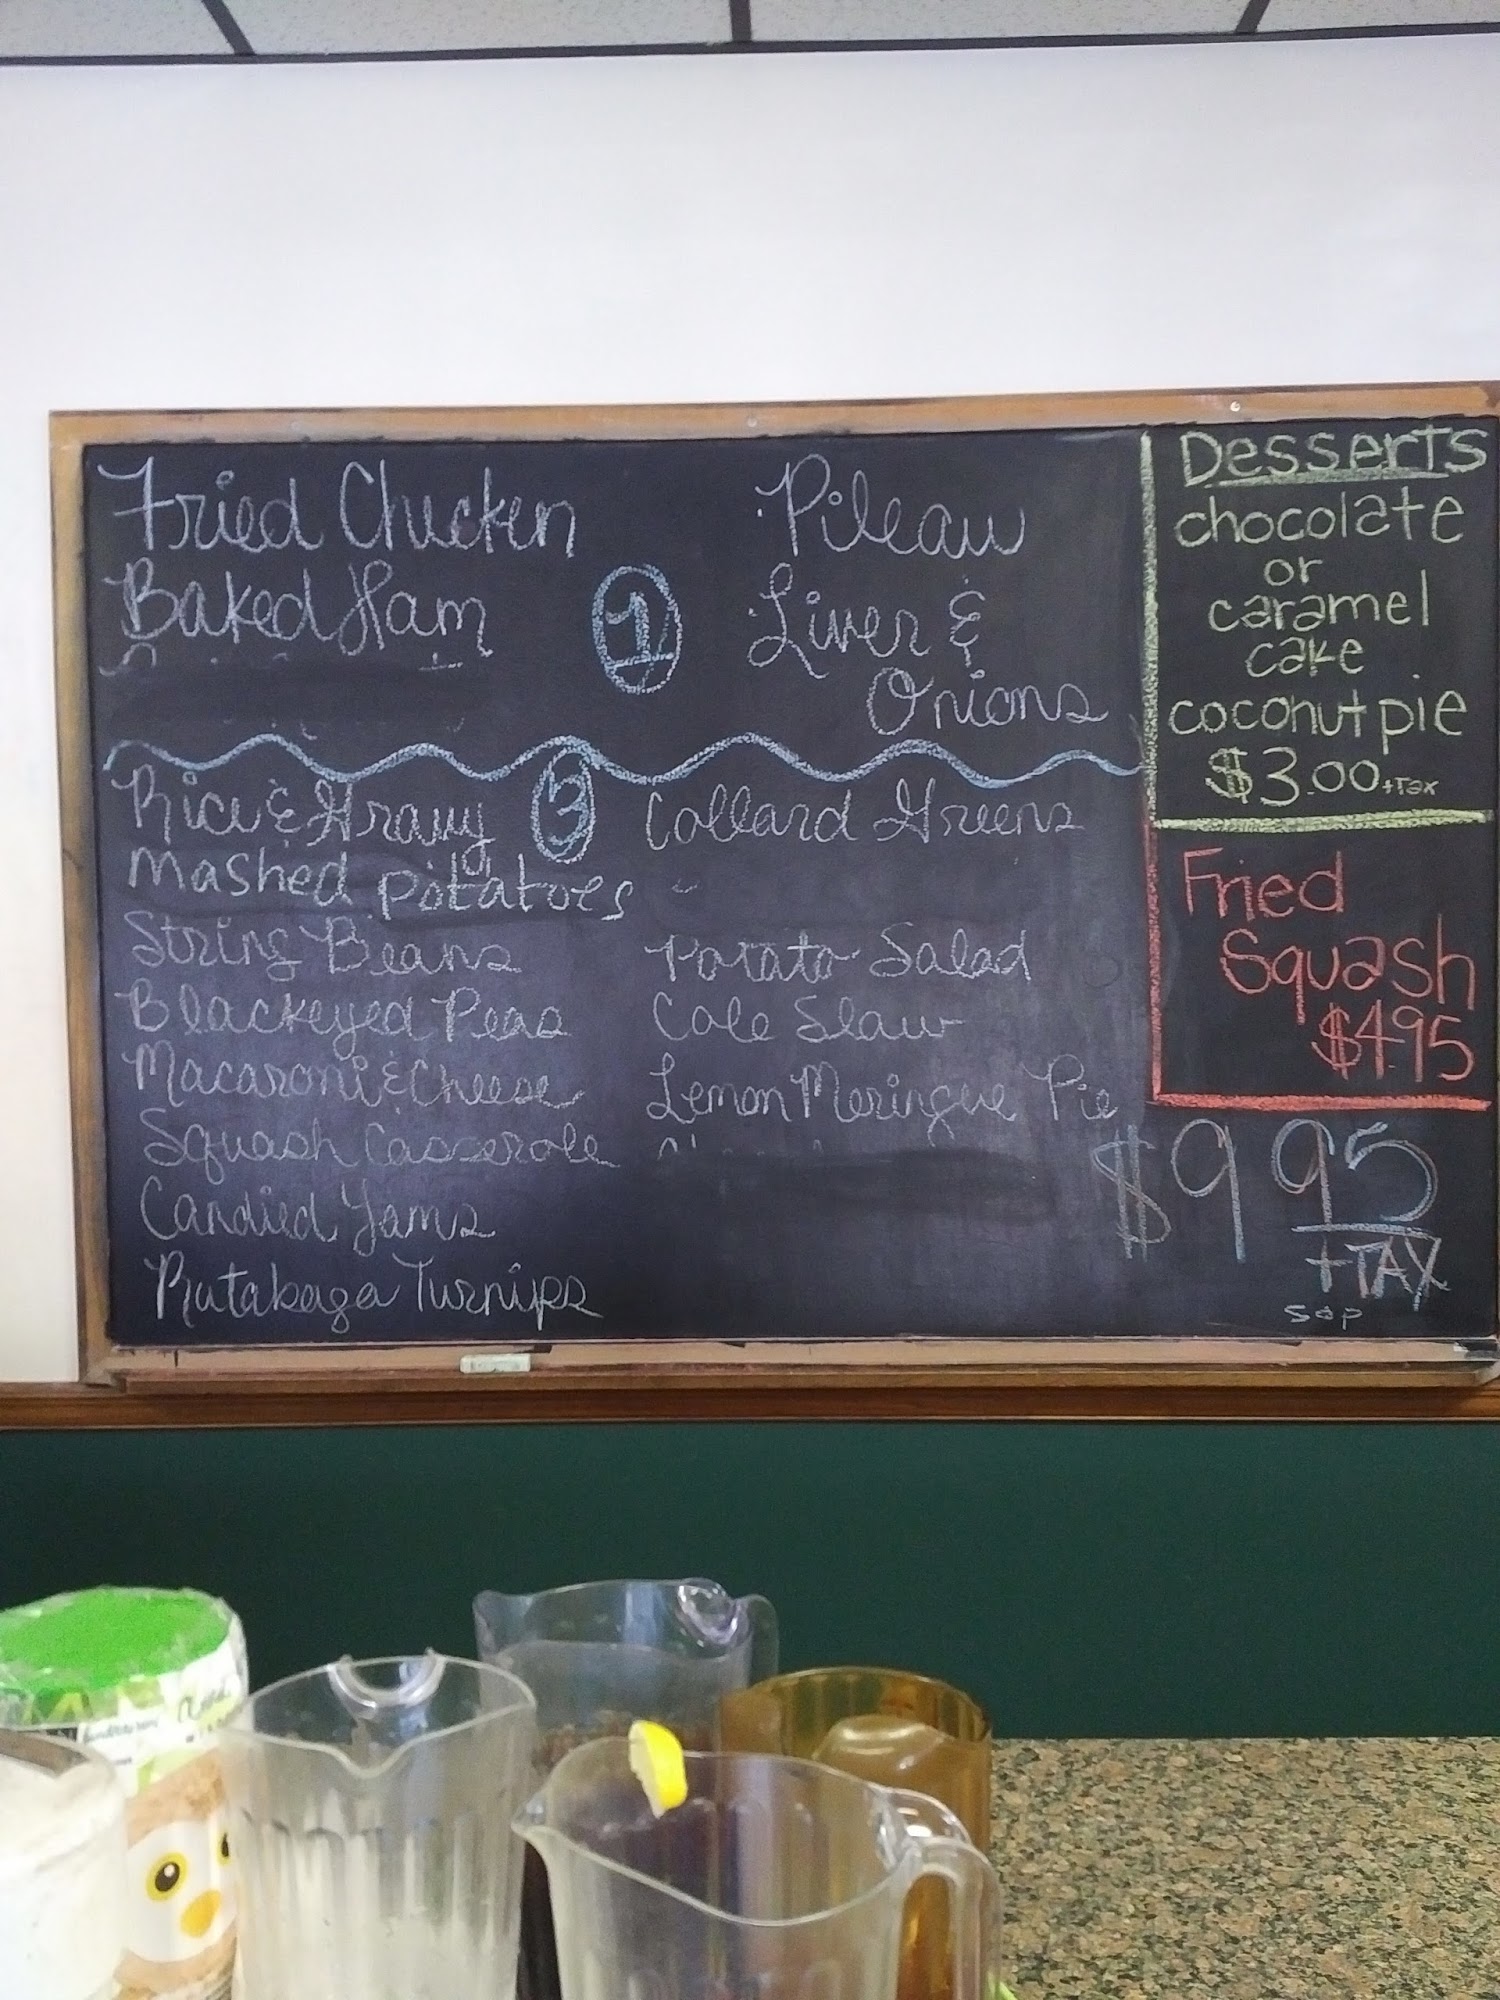 Fried Chicken
Baked Ham
1
Pileau
Liver &
Onions
Rice & Gravy
3
Mashed potatoes
String Beans
Blackeyed Peas
Macaroni & Cheese
Squash Casserole
Candied Yams
Rutabaga Turnips
Collard Greens
Potato Salad
Cole Slaw
Lemon Meringue Pie
Desserts
chocolate
or
caramel
cake
coconut pie
$3.00 +Tax
Fried
Squash
$4.95
$9 95
+TAX